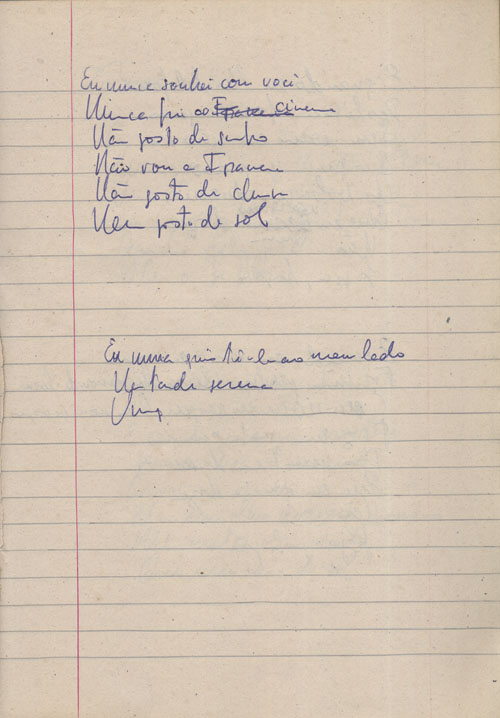 Eu nunca sonhei com você
Nunca fui ao Ipanema cinema
Não gosto de samba
Não vou a Ipanema
Não gosto de chuva
Nem gosto de sol
Eu nunca quis tê-la ao meu lado
serena